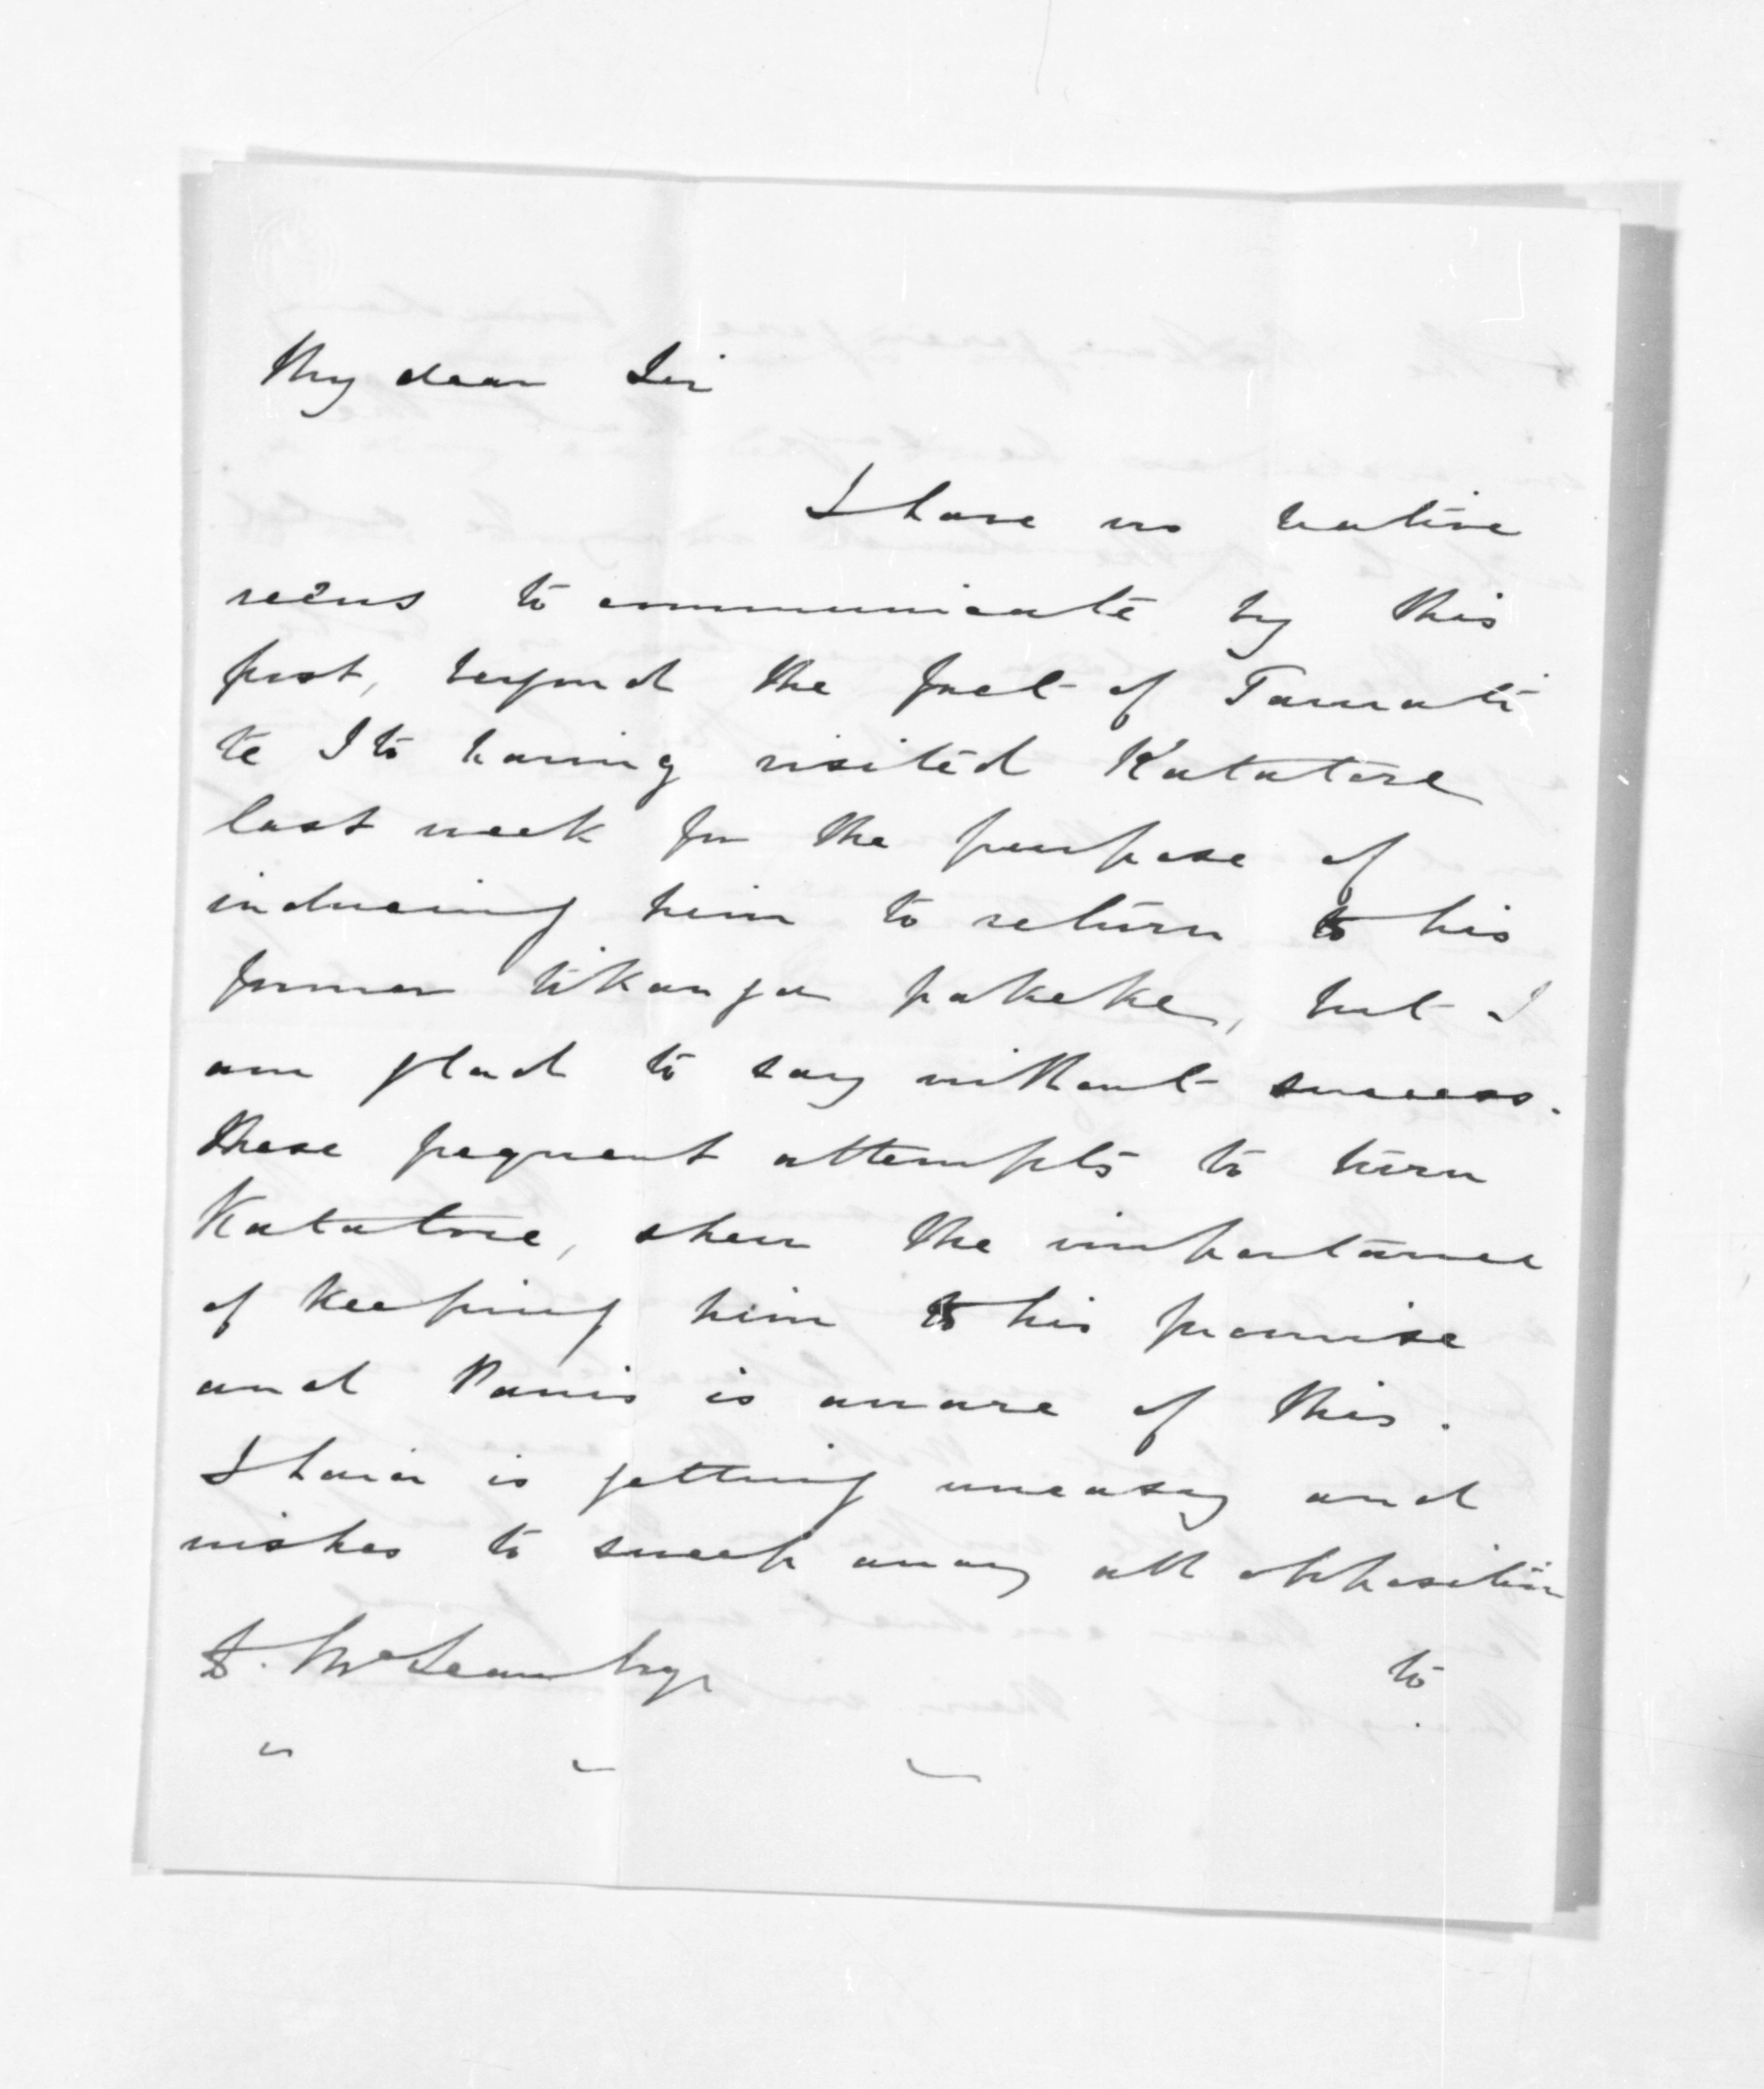 My dear Sir
I have no native
news to communicate by this
post, beyond the fact of Tamati
te Ito having visited Katatore
last week for the purpose of
inducing him to return to his
former tikanga pakeke, but I
am glad to say without success.
These frequent attempts to turn
Katatore, shew the importance
of keeping him to his promise
and Parris is aware of this.
Ihaia is getting uneasy and
wishes to sweep away all opposition
D. McLean Esqr
to